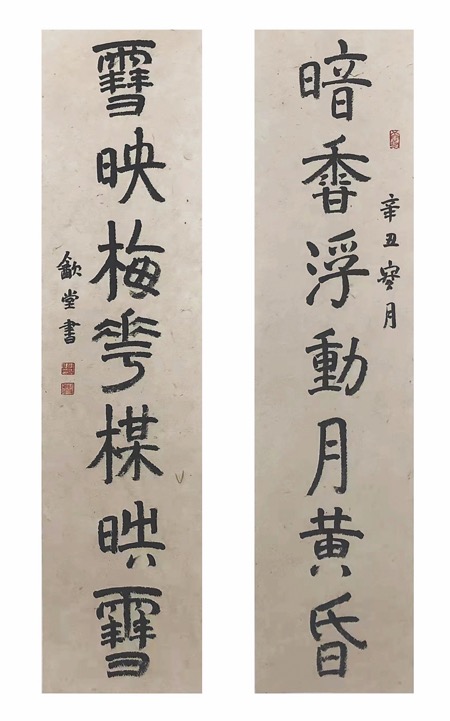 暗香浮動月黄昏
辛丑寒月
雪映梅花楳映雪
堂書